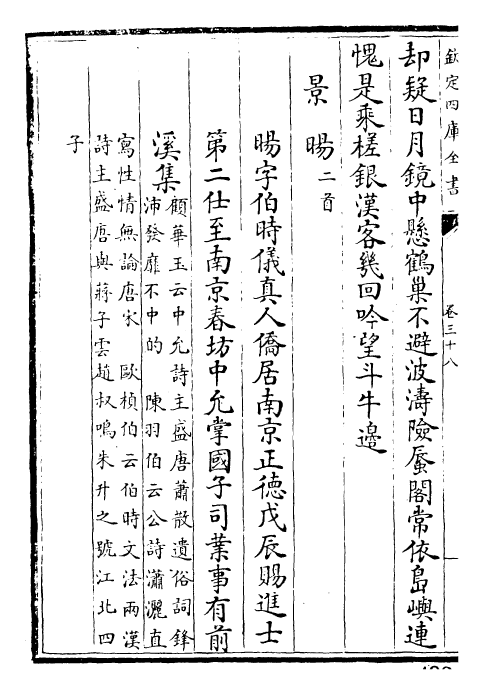 欽定四庫全書
卷三十八
却疑日月鏡中懸鶴巢不避波濤險蜃閣常依島嶼連
愧是乘槎銀漢客幾回吟望斗牛邉
景暘二首
暘字伯時儀真人僑居南京正德戊辰賜進士
第二仕至南京春坊中允掌國子司業事有前
溪集
顧華玉云中允詩主盛唐蕭散遺俗詞鋒
沛發靡不中的　陳羽伯云公詩瀟灑直
寫性情無論唐宋　歐楨伯云伯時文法兩漢
詩主盛唐與蔣子雲趙叔鳴朱升之號江北四
子